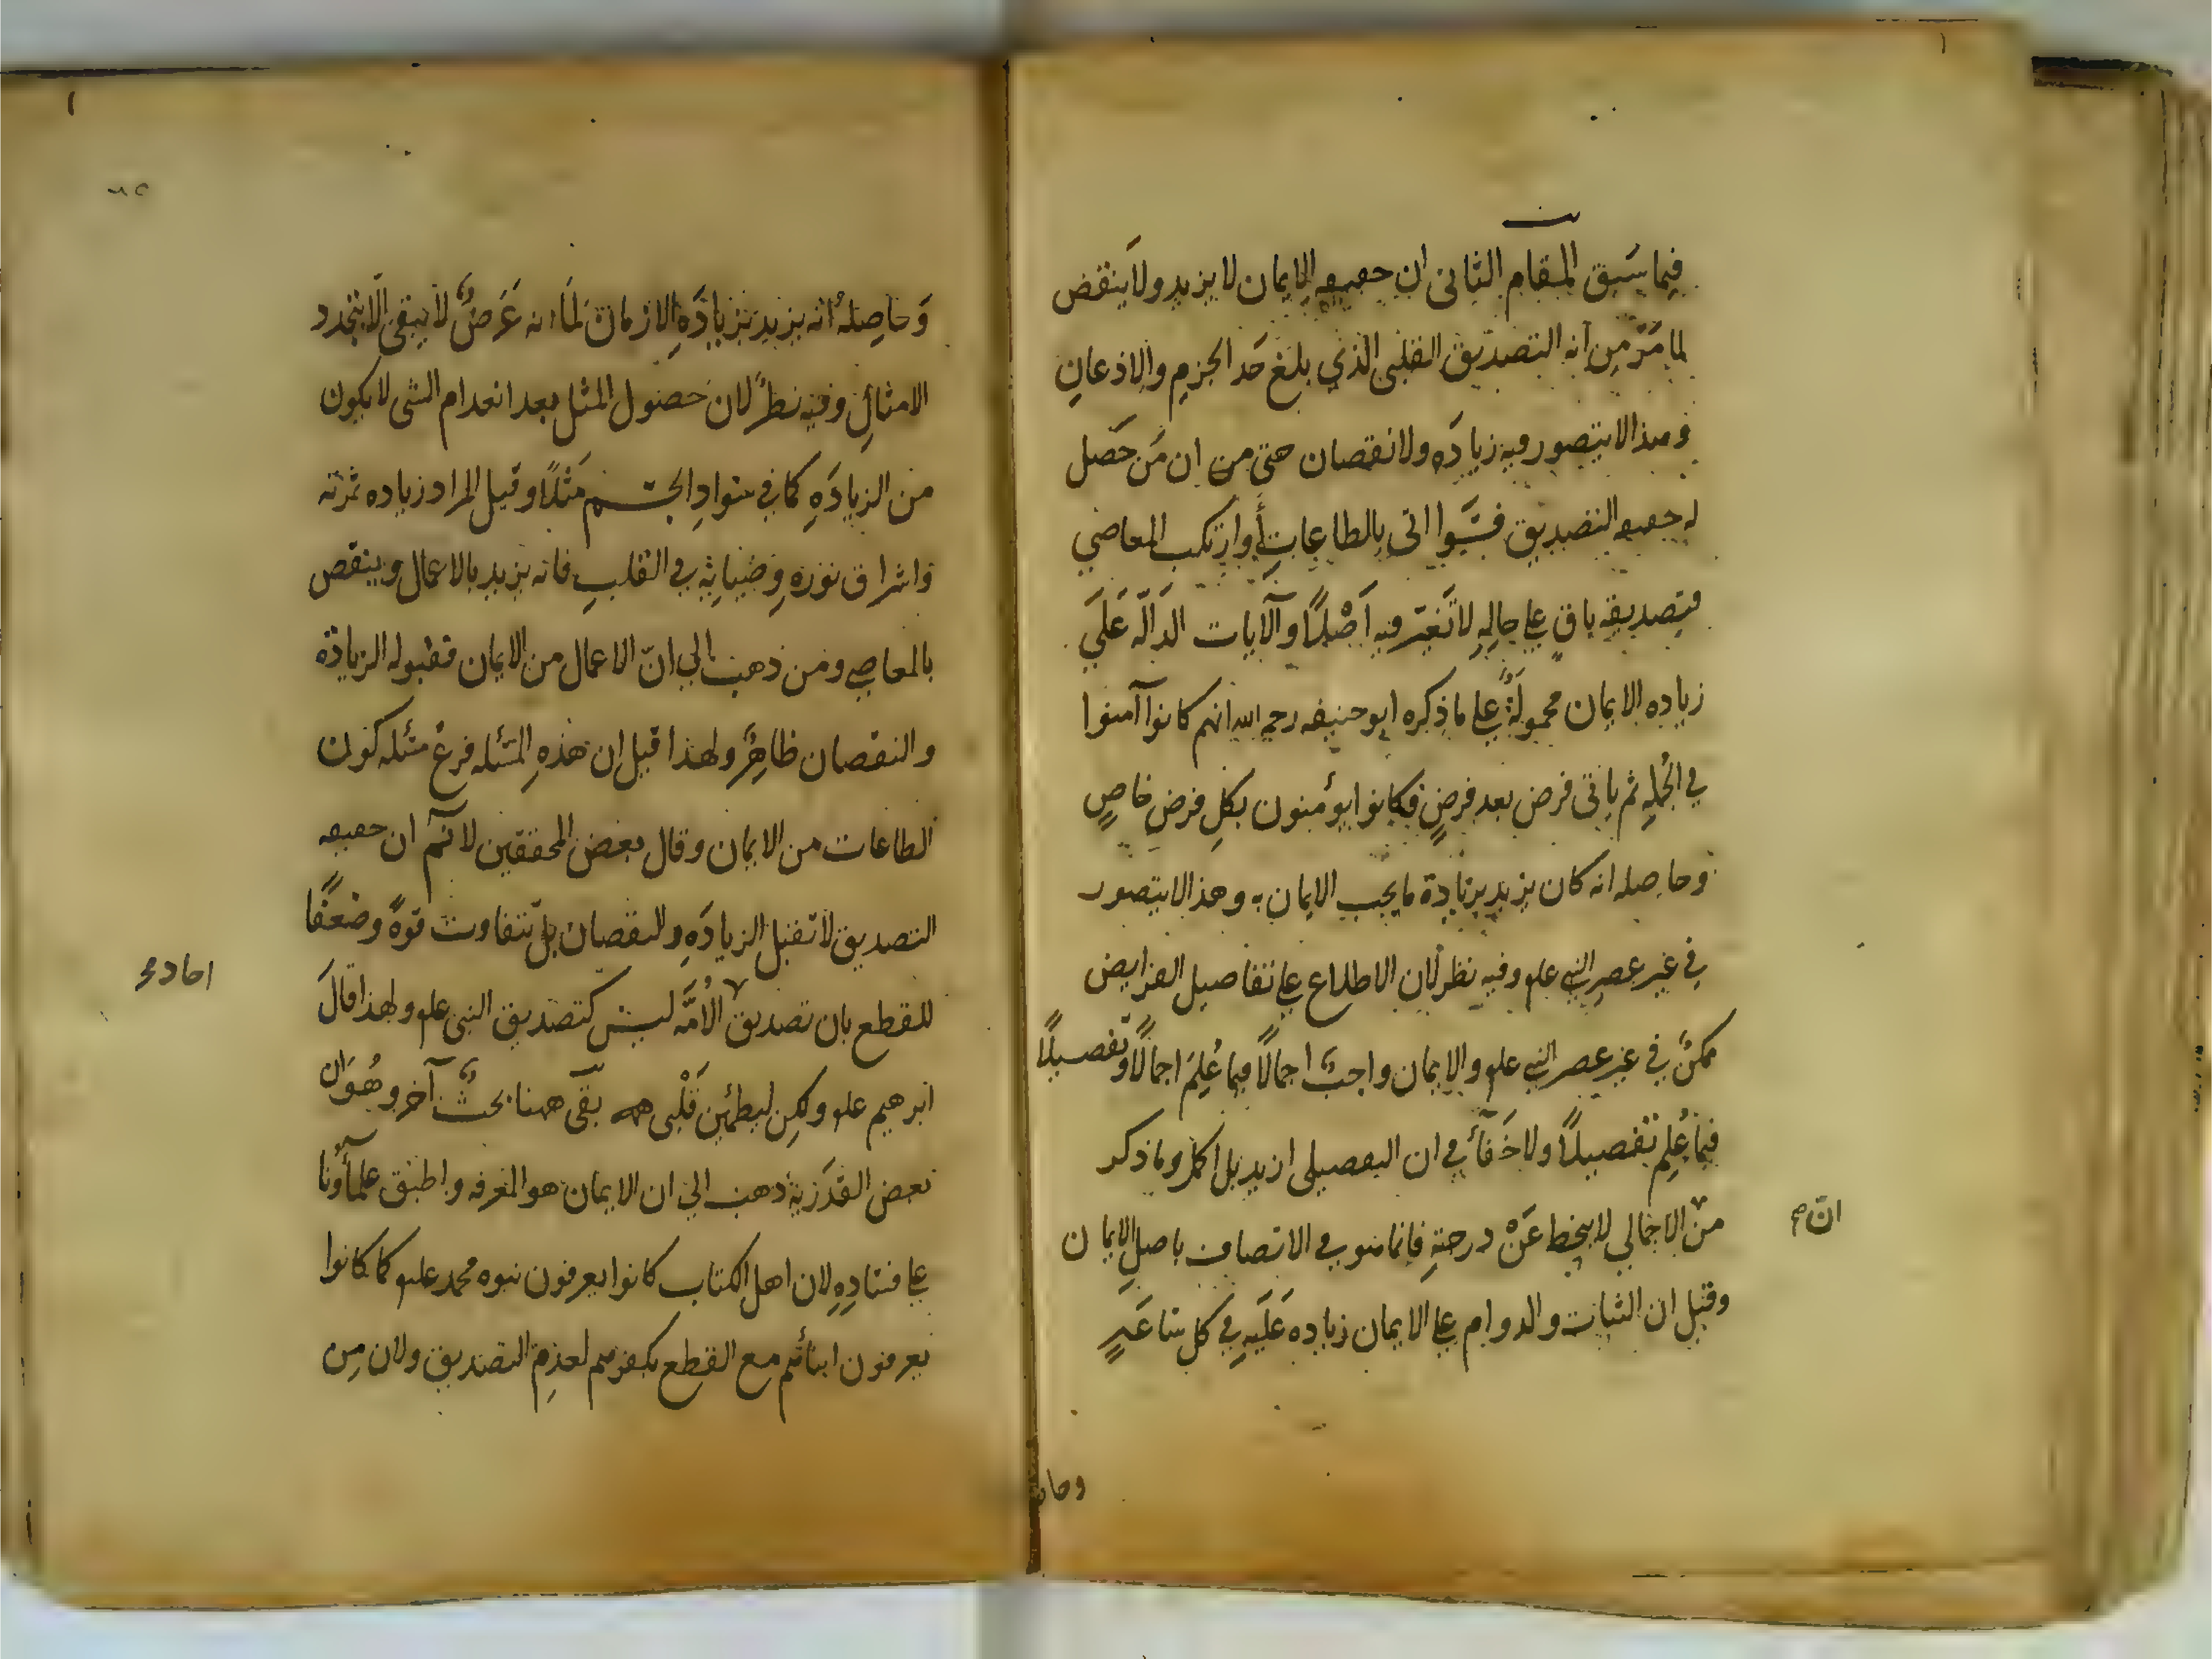 فيما سبق المقام الثاني ان حقيقه الايمان لا يزيد ولا ينقص
لما مَرّ مِن انه التصديق القلبي الذي بلغ حَد الجزم والاذعانِ
وهذا لا يتصور فيه زيادَه ولا نقصان حتى من ان مَن حَصل
له حقيقه التصديق فسَوا اتى بالطاعاتِ أو ارتكب المعاصي
فتصديقه باقٍ على حالِهِ لا تَغيّر فيه اَصْلًا والآيات الدَالّه عَلَي
زياده الايمان محمولَةٌ على ما ذكره ابو حنيفه رحمه الله انهم كانوا آمنوا
في الجُملِه ثم ياتى فرض بعد فرضٍ فكانوا يؤمنون بكلِ فرضٍ خاصٍ
وحاصله انه كان يزيد بزيادة ما يجب الايمان به وهذا لا يتصور
في غير عصرِ النبي علم وفيه نظر لان الاطلاع على تفاصيل الفرايض
ممكنٌ في غير عصر النبي علم والايمان واجبٌ اجمالًا فيما عُلِمَ اجمالًا وتفصيلًا
فيما عُلِم تفصيلًا ولا خَفآء في ان التفصيلى ازيد بل اكمل وما ذكر
ان صح
منْ الاجمالي لا ينحط عَنْ درجتِهِ فانما هو في الاتصاف باصل الايمان
وقيل ان الثبات والدوام على الايمان زياده عَلَيهِ في كل ساعَهٍ
وحا
وَحاصِلهُ انه يزيد بزيادَهِ الازمان لَما انه عَرَضٌ لا يبقى الّا بتجدد
الامثالِ وفيه نظرٌ لان حصول المثل بعد انعدام الشى لا يكون
من الزيادَهِ كما في سوادِ الجسم مَثَلًا وقيل المراد زياده ثمرته
واشراق نورهِ وضيائِهِ في القلبِ فانه يزيد بالاعمال وينقص
بالمعاصي ومن ذهب الي انّ الاعمال من الايمان فقبوله الزيادة
والنقصان ظاهِرٌ ولهذا قيل ان هذهِ المسئله فرع مسئله كون
الطاعات من الايمان وقال بعض المحققين لا نسَلّم ان حقيقه
التصديق لا تقبل الزيادَهِ والنقصان بل تتفاوت قوةً وضعفًا
احاد
للقطع بان تصديق الاُمَّه ليس كتصديق النبي علم ولهذا قالَ
ابرهيم علم ولكِن ليطمئِن قَلْبى بقى ههنا بحثٌ آخر وهُوَ ان
بعض القدَريَة ذهب الى ان الايمان هو المعرفه واطبق علمآؤنا
على فسادِهِ لان اهل الكتاب كانوا يعرفون نبوه محمد علم كما كانوا
يعرفون ابنائهم مع القطع بكفرهم لعدمِ التصديق ولان مِن